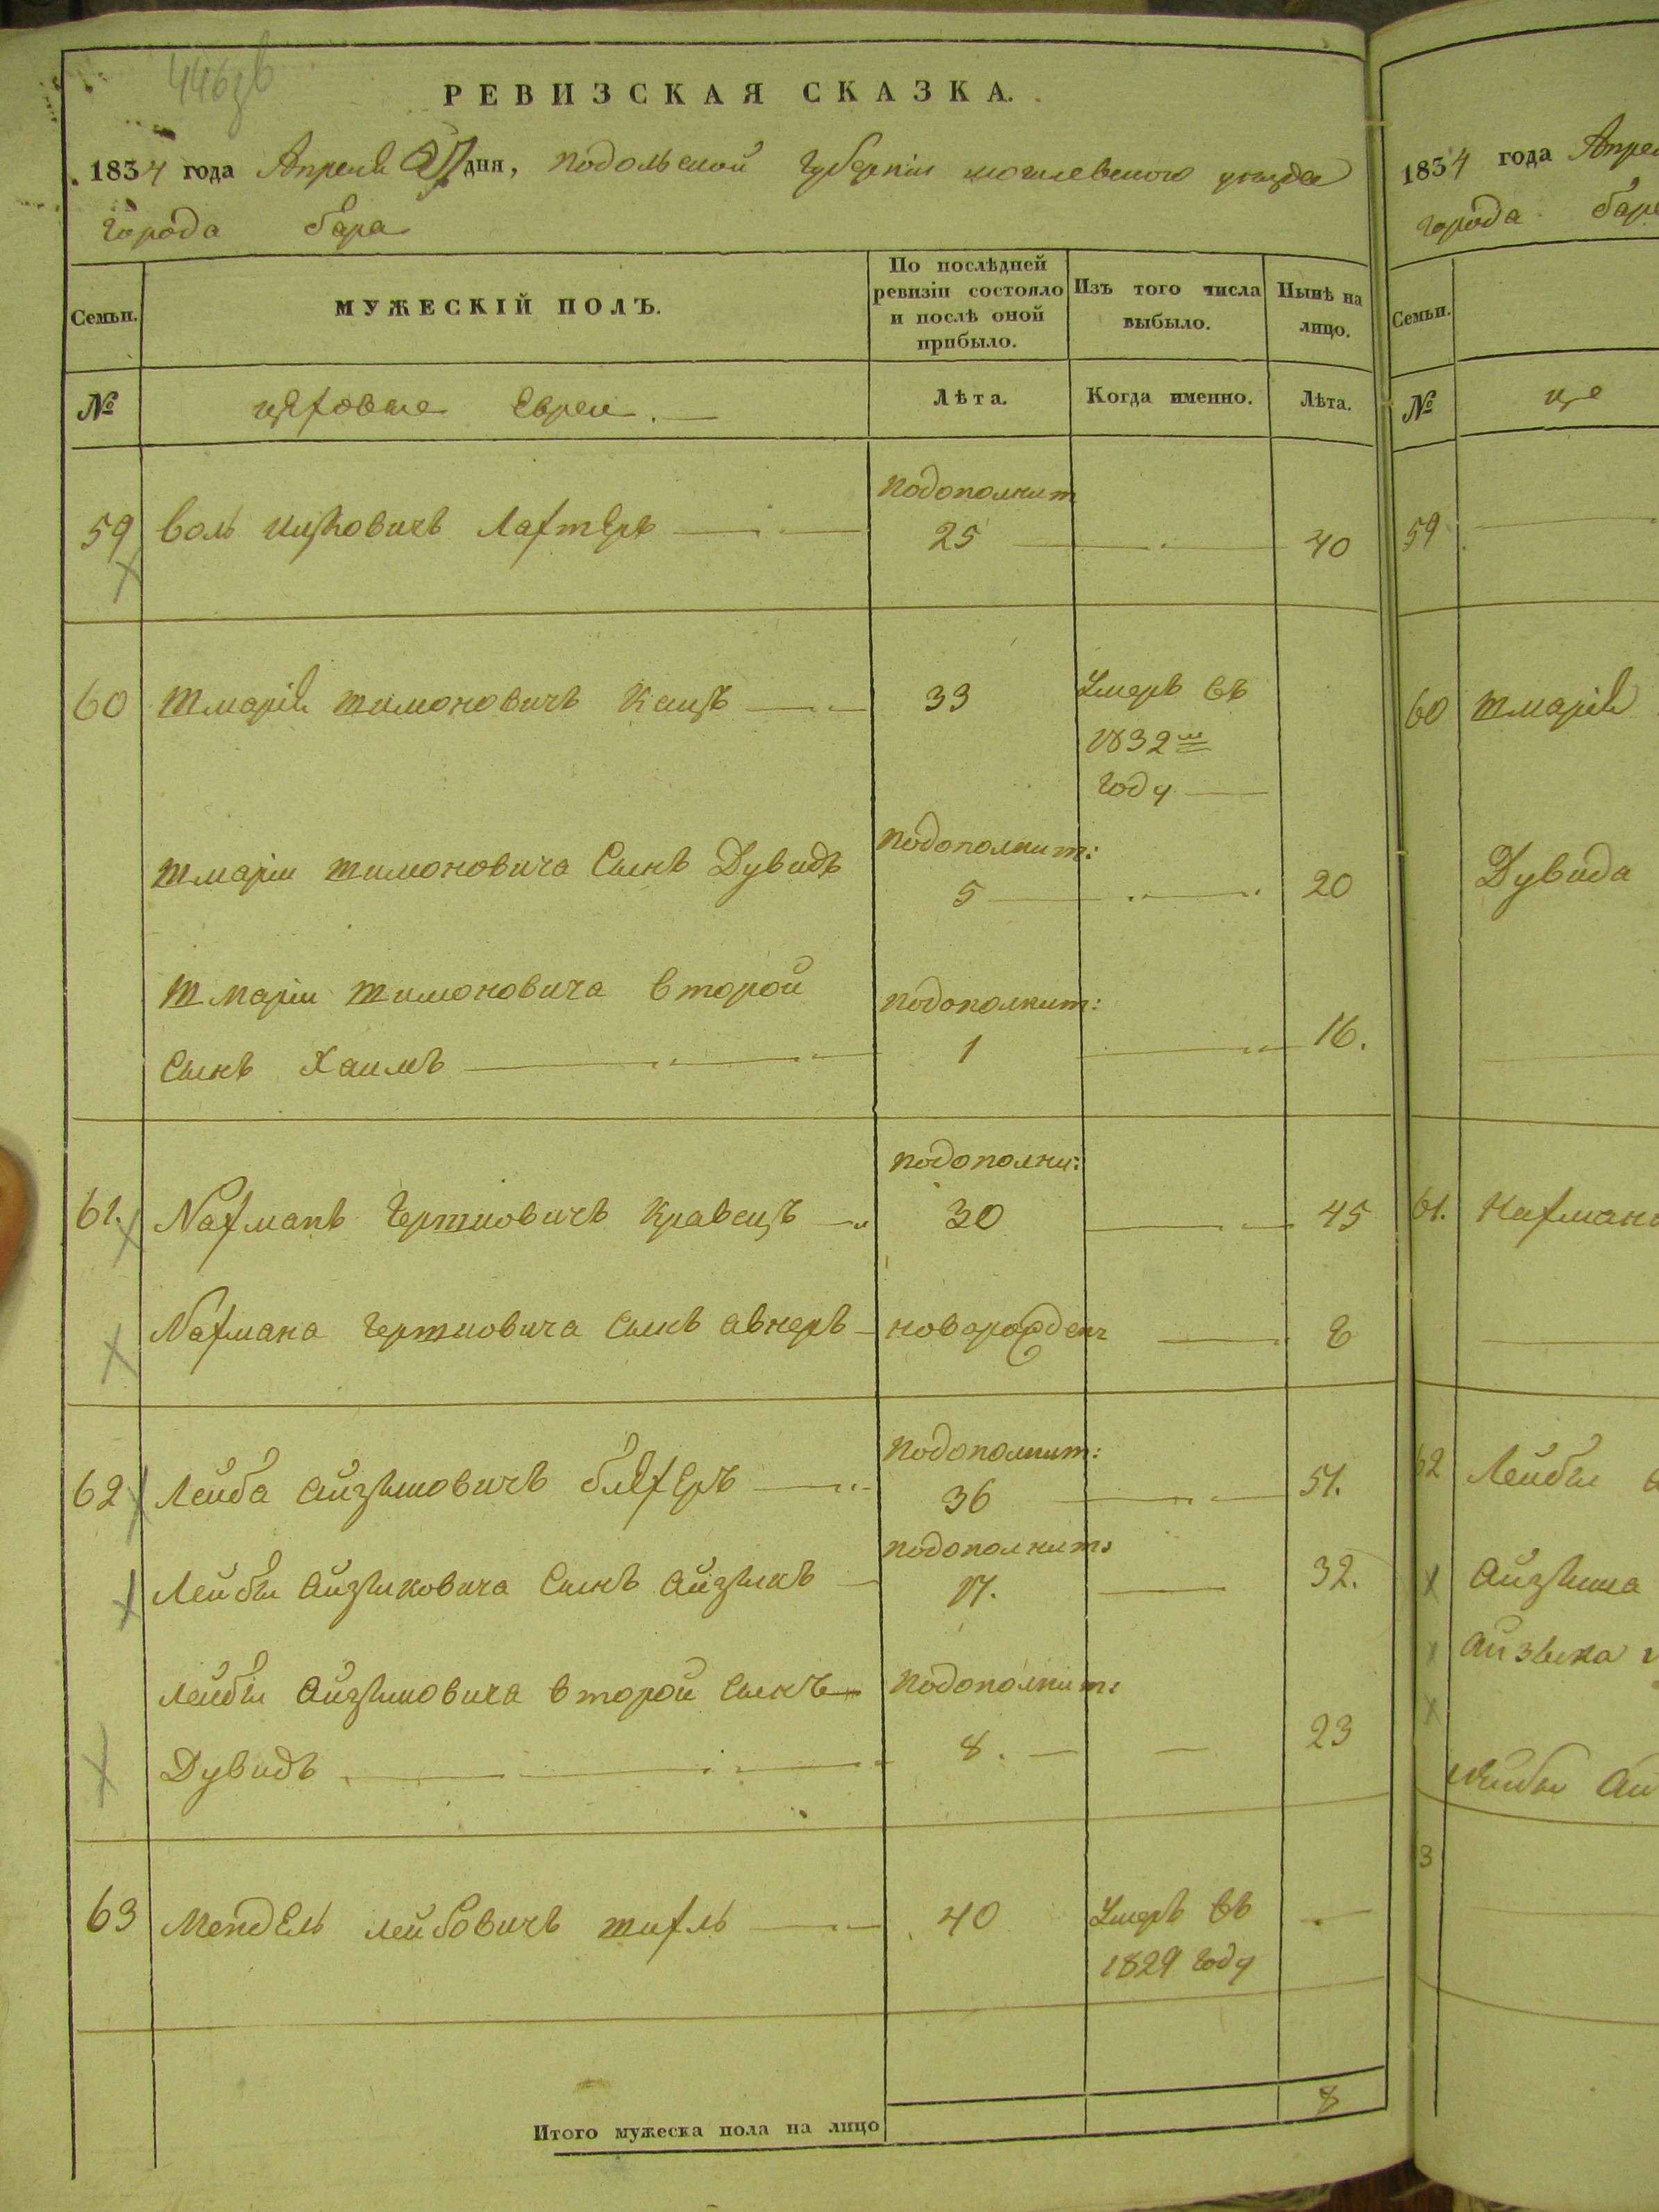 446зв
РЕВИЗСКАЯ СКАЗКА.
1834 года Апреля дня, Подольской Губерніи могилевского уезда
города бара
Семьи. МУЖЕСКІЙ ПОЛЪ. По послѣдней ревизіи состояло и послѣ оной прибыло. Изъ того числа выбыло. Нынѣ на лицо.
№ цеховые Евреи. Лѣта. Когда именно. Лѣта.
подополнит
59 Воль Ицковичъ Лахтеръ 25 40
60 Шмарія Шимоновичъ Кацъ 33 Умеръ въ
1832м
году
подополнит:
Шмаріи Шимоновича Сынъ Дувидъ 5 20
Шмаріи Шимоновича второй подополнит:
Сынъ Хаимъ 1 16.
подополни:
61. Нахманъ Гершковичъ Кравецъ 30 45
Нахмана Гершковича Сынъ Авнеръ новорожден 8
подополнит:
62 Лейба Айзыковичъ Бляхеръ 36 51.
подополнит:
Лейбы Айзыковича Сынъ Айзыкъ 17. 32.
Лейбы Айзыковича второй Сынъ подополнит:
Дувидъ 8. 23
63 Мендель Лейбовичъ Шихль 40 Умеръ въ
1829 году
Итого мужеска пола на лицо 8
1834 года Апре
города баре
Семьи.
№ це
59
60 Шмарія
Дувида
61. Нахмана
62 Лейбы
Айзыка
Айзыка
Лейбы Ай
3